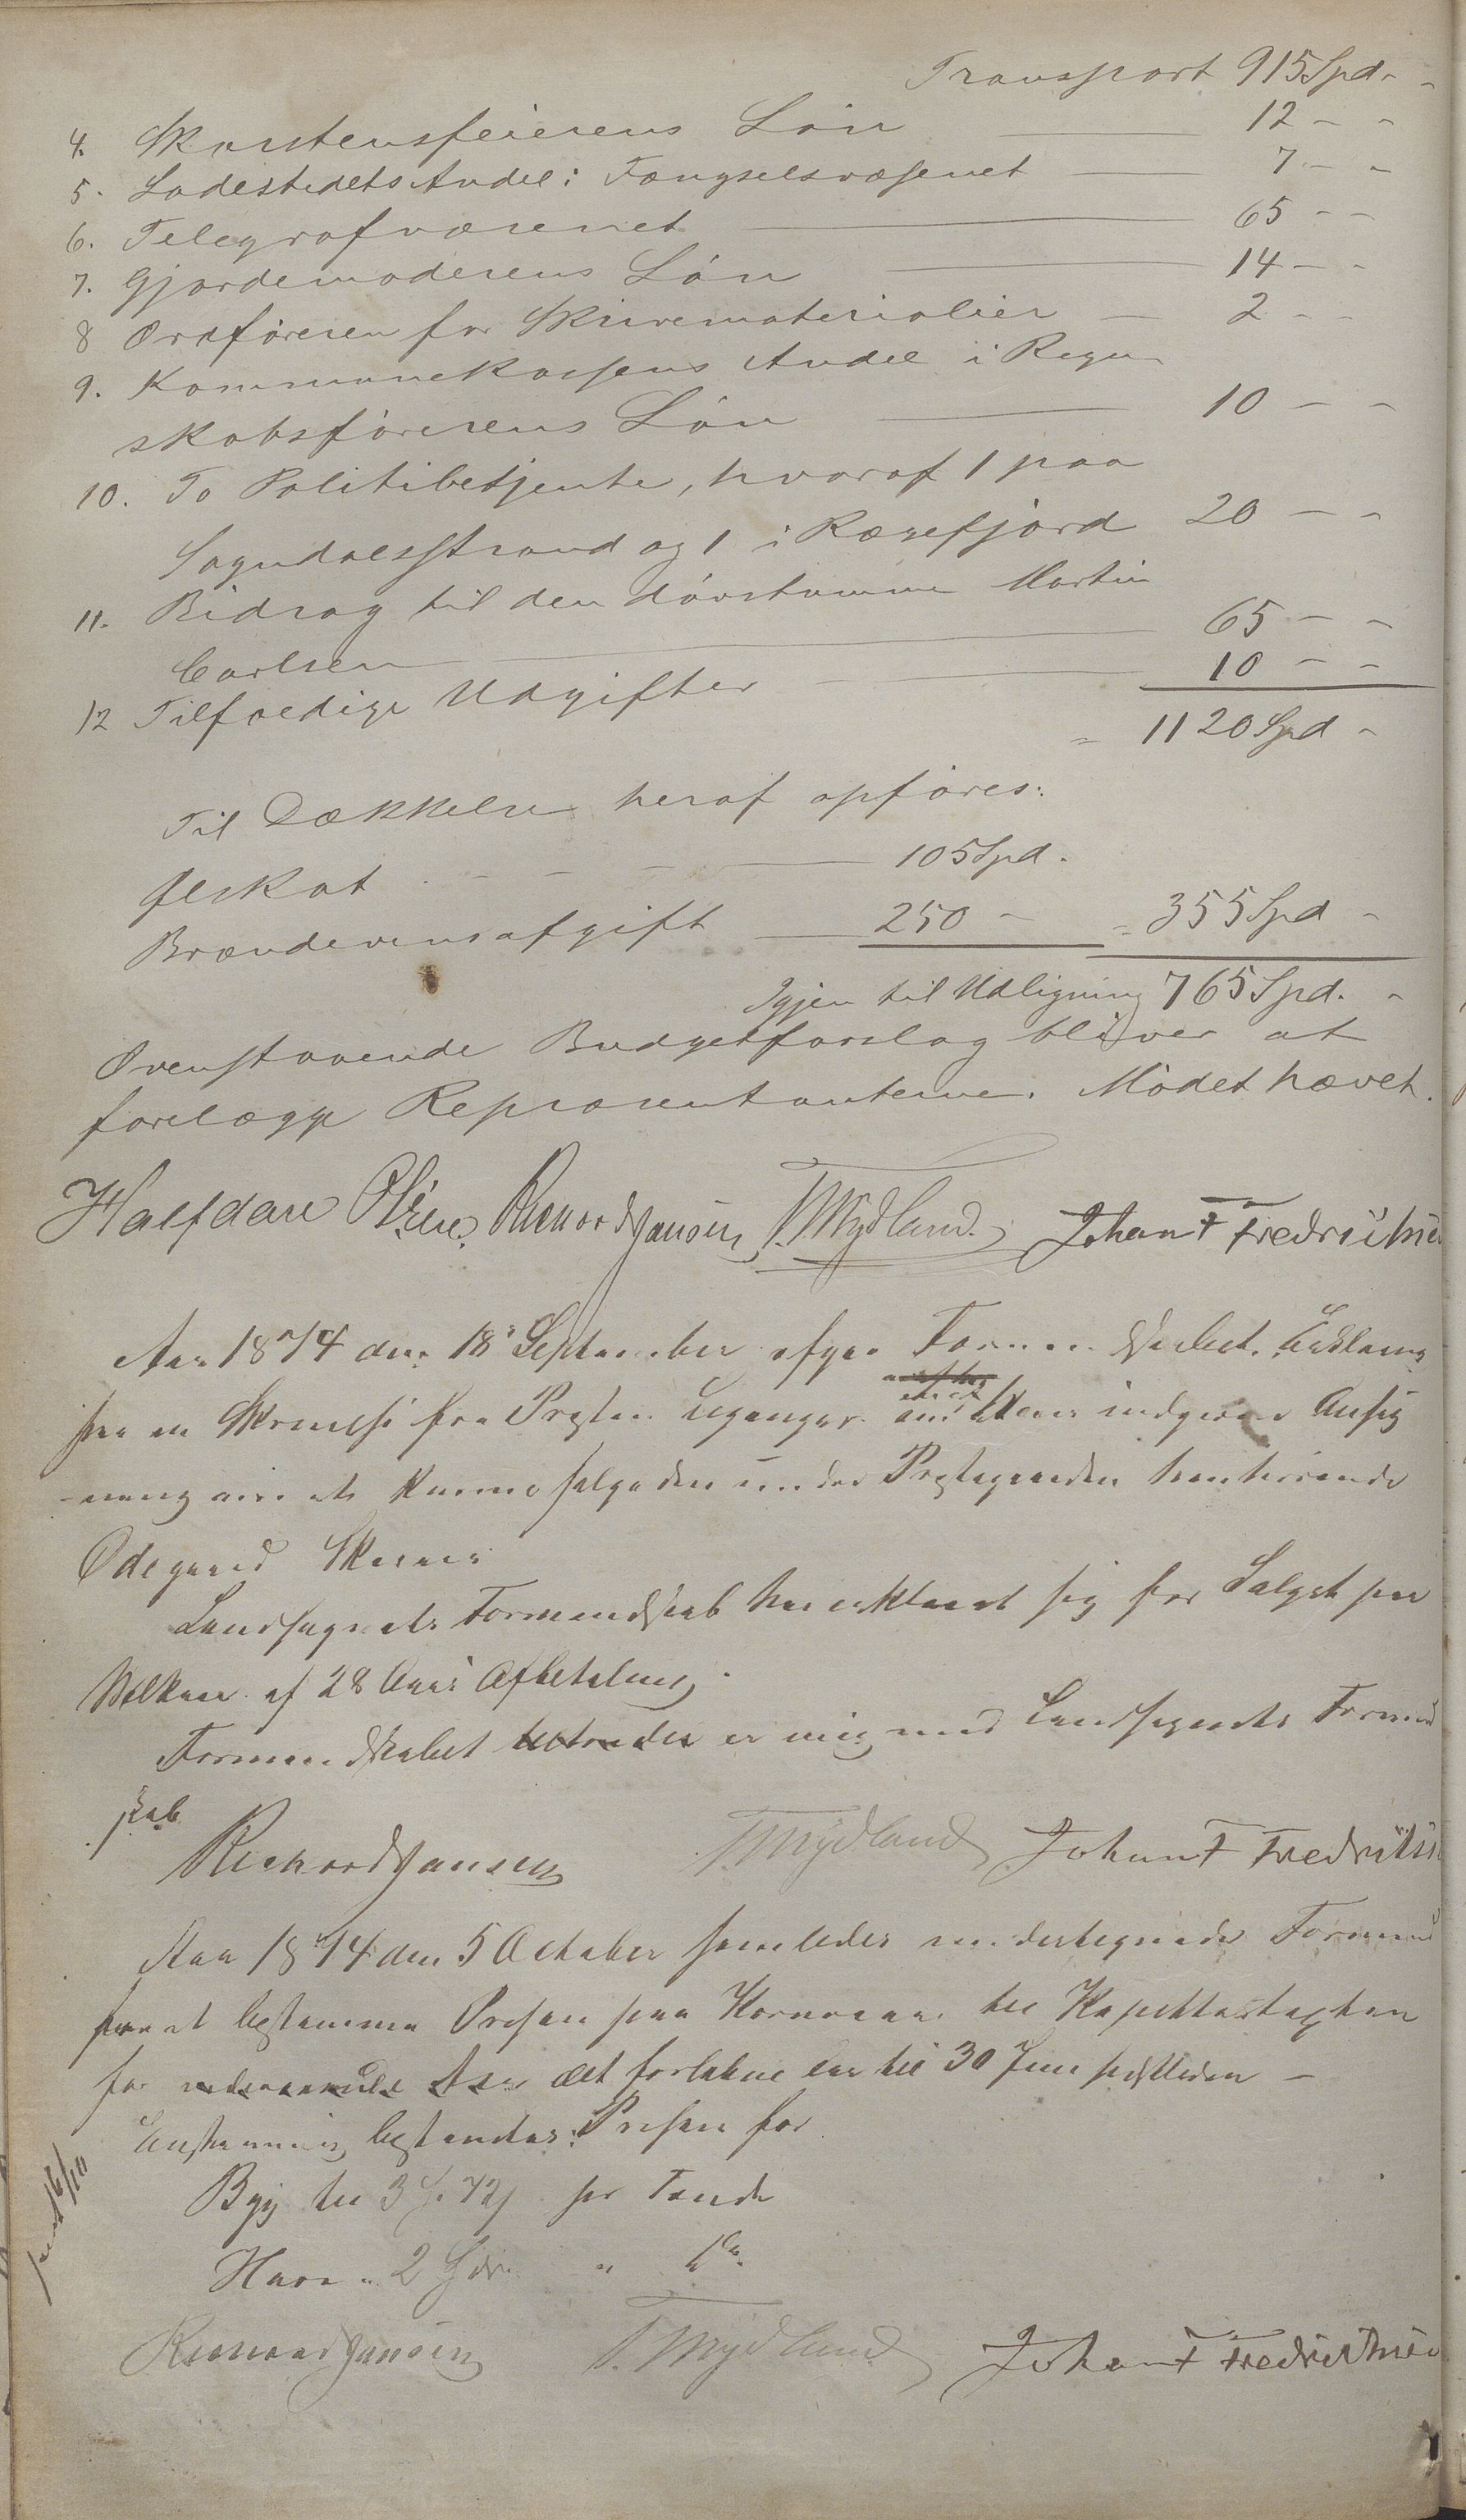 Transport 915 Spd. -
4. Skorstensfeierens Løn 12 - -
5. Ladestedets Andel i Fængselsvæsenet 7 - -
6. Telegrafvæsenet 65 - -
7. Gjordemoderens Løn 14 - -
8 Ordføreren for Skrivematerialier 2 - -
9. Kommunekassens Andel i Regn
skabsførerens Løn 10 - -
10. To Politibetjente, hvoraf 1 paa
Sogndalsstrand og 1 i Rægefjord 20 - -
11. Bidrag til den døvstumme Martin
Carlsen 65 - -
12 Tilfældige Udgifter 10 - -
= 1120 Spd -
Til Dækkelse heraf opføres:
Ølskat 105 Spd.
Brændevinsafgift 250 - = 355 Spd -
Igjen til Udligning 765 Spd. -
Ovenstaaende Budgetforslag bliver at
forelægge Repræsentanterne. Mødet hævet.
Halfdan Olsen. Richard Jansen T. Mydland. Johan F Fredriksen
Aar 1874 den 18 September afgav Formandskabet Erklæring
paa en Skrivelse fra Presten indgivne Ansøg
-ning om at kunne sælge den under Prestegaarden henhørende
Ødegaard
Landsognets Formandskab har erklæret sig for Salget paa
Vilkaar af 28 Aars Afbetaling.
Formandskabet er enig med Landsognets Formand
skab
Richard Jansen T. Mydland Johan F Fredriksen
Aar 1874 den 5 October samledes undertegnede Formænd
for at bestemme Prisen paa Kornvarer til Kapiteltaxten
for det forløbne Aar til 30 Juni sidstleden -
Enstemmig bestemtes: Prisen for
Byg til 3 72 pr Tønde
Havre " 2 " do.
Richard Jansen T. Mydland Johan F Fredriksen